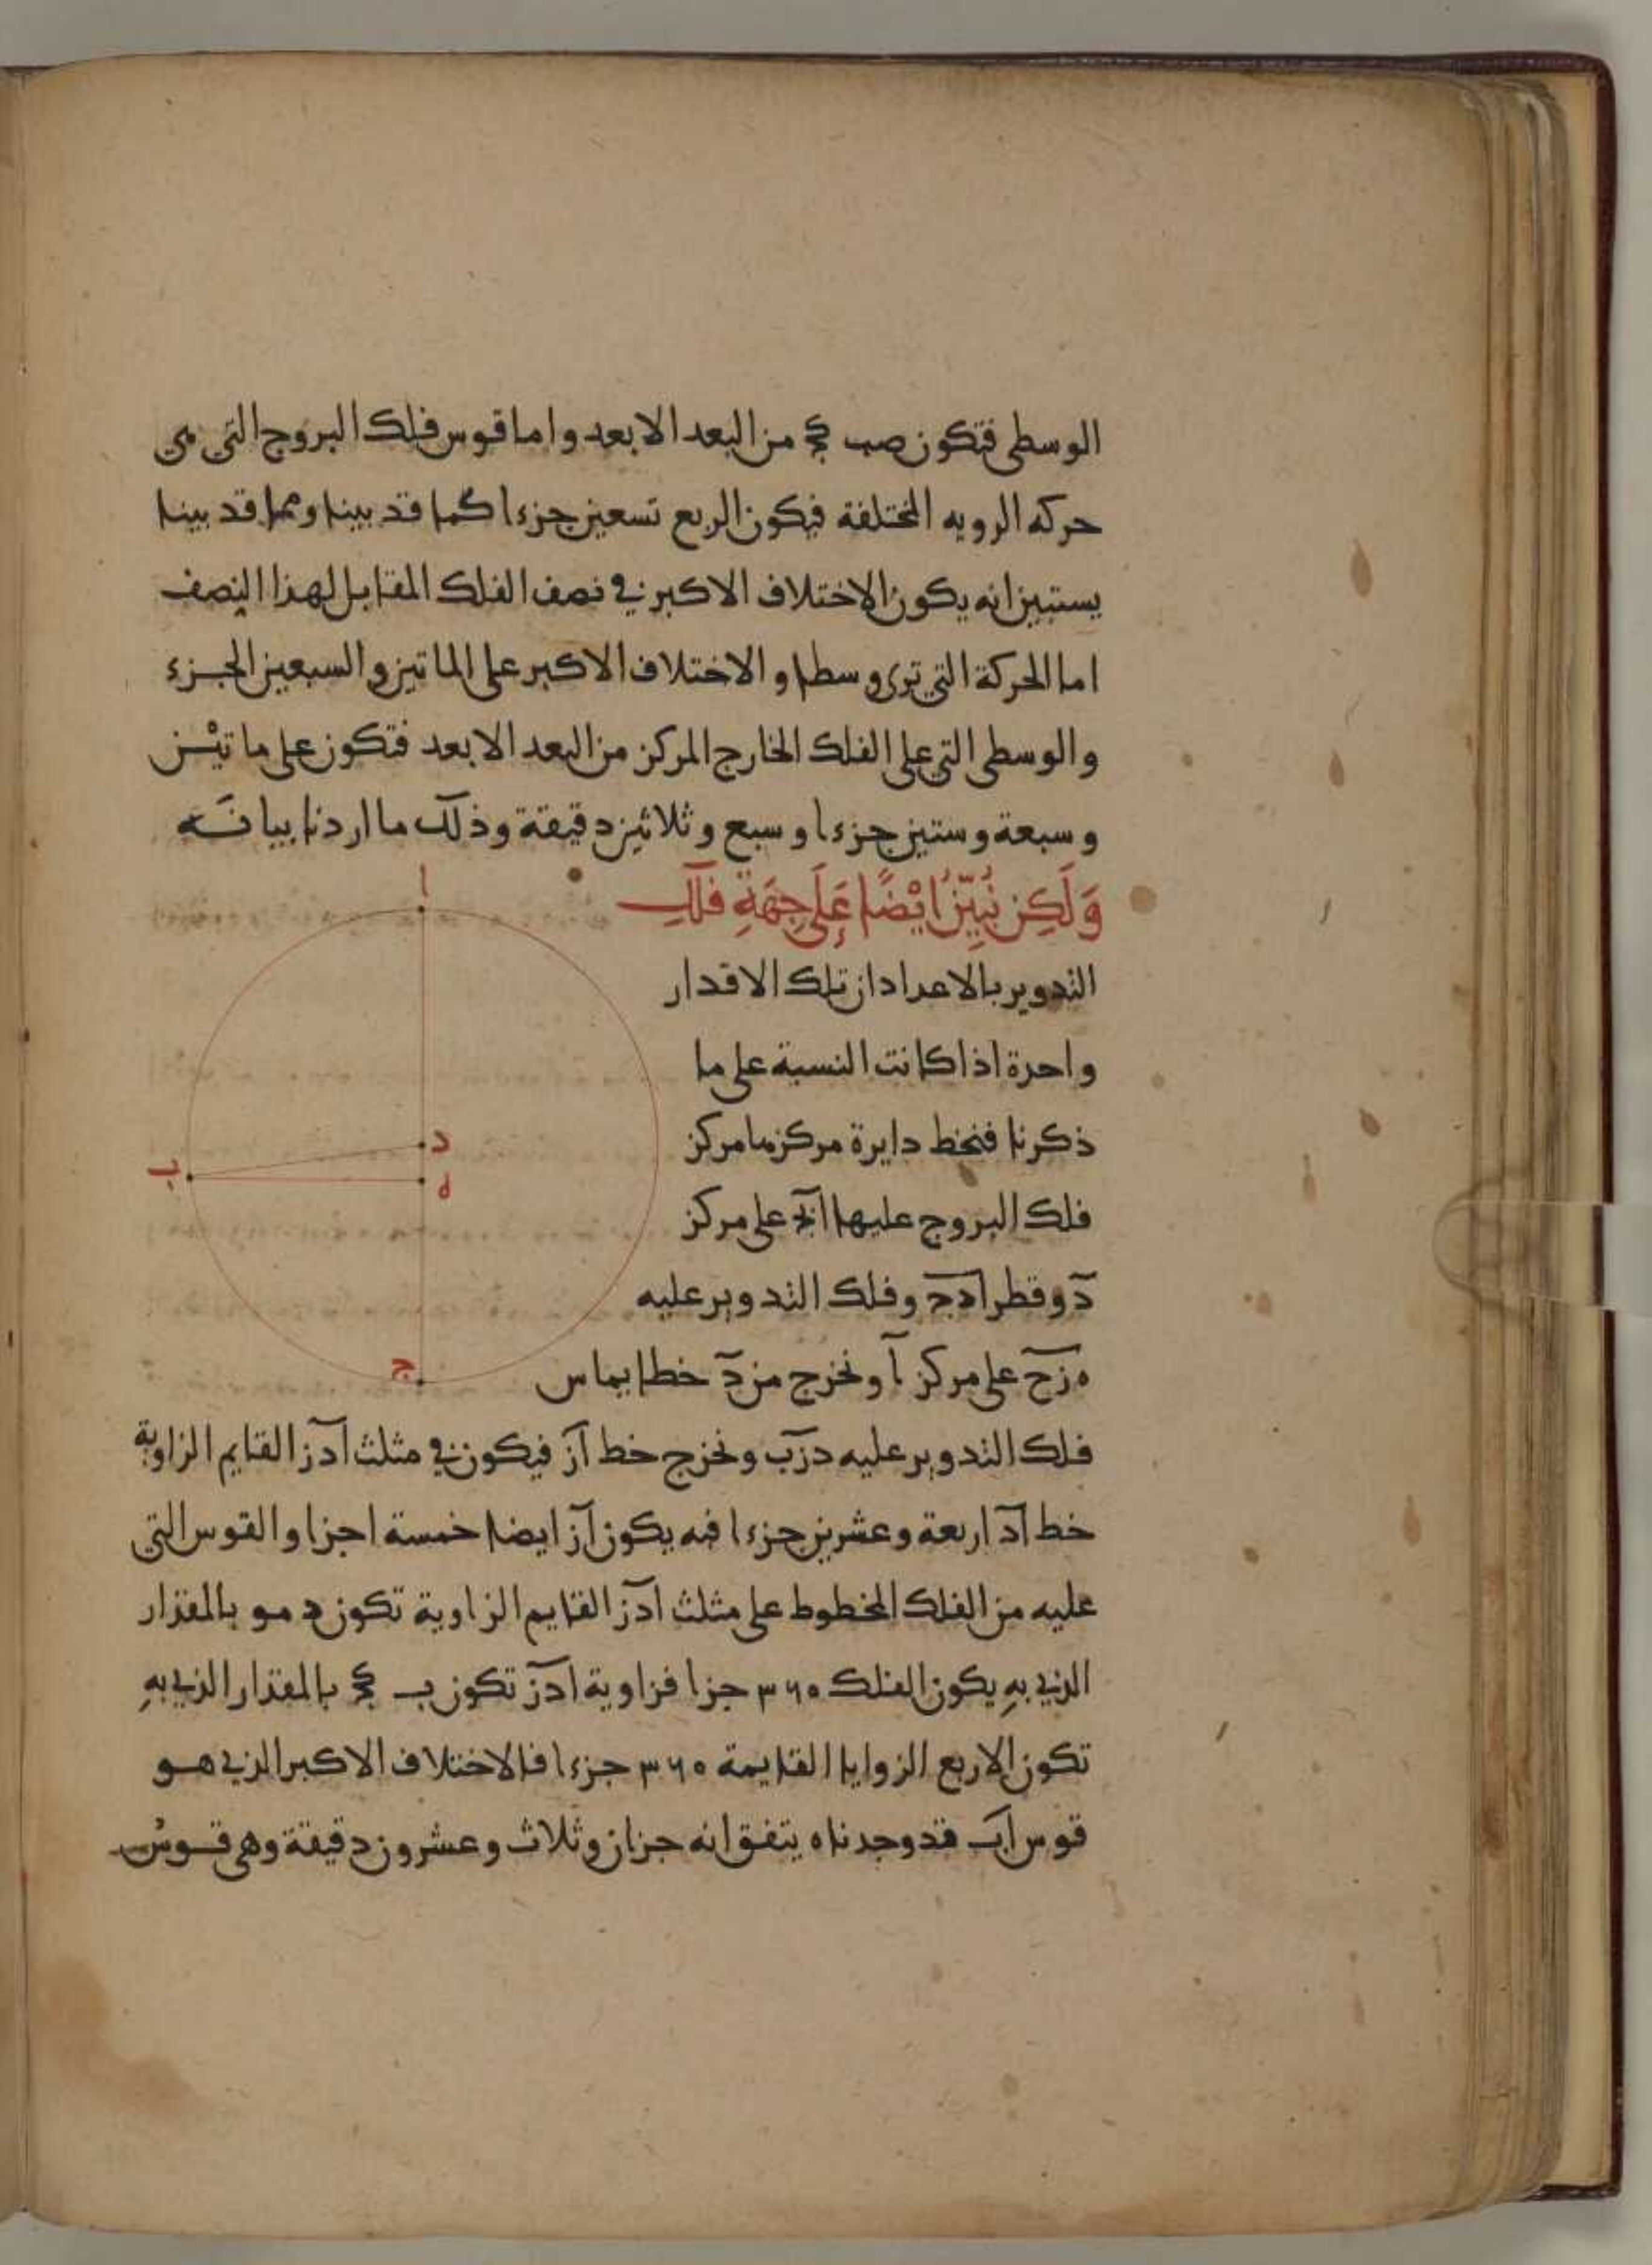 الوسطى فتكون صب كج من البعد الابعد واما قوس فلك البروج التي هي
حركة الروية المختلفة فيكون الربع تسعين جزءا كما قد بينا ومما قد بينا
يستبين انه يكون الاختلاف الاكبر في نصف الفلك المقابل لهذا النصف
اما الحركة التي ترى وسطا والاختلاف الاكبر على الماتين والسبعين الجزء
والوسطى التي على الفلك الخارج المركز من البعد الابعد فتكون على ماتيْن
وسبعة وستين جزءا وسبع وثلاثين دقيقة وذلك ما اردنا بيانه
وَلَكِن نُبَيِّنُ ايْضًا عَلَى جِهَةِ فلك
التدوير بالاعداد ان تلك الاقدار
واحدة اذا كانت النسبة على ما
ذكرنا فنخط دايرة مركزها مركز
فلك البروج عليها ابج على مركز
د وقطر ادج وفلك التدوير عليه
ه زح على مركز ا ونخرج من د خطا يماس
فلك التدوير عليه دزب ونخرج خط از فيكون في مثلث ادز القايم الزاوية
خط اد اربعة وعشرين جزءا فبه يكون از ايضا خمسة اجزا والقوس التي
عليه من الفلك المخطوط على مثلث ادز القايم الزاوية تكون د مو بالمقدار
الذي بهِ يكون الفلك ٣٦٠ جزا فزاوية ادز تكون ب كج بالمقدار الذي بهِ
تكون الاربع الزوايا القايمة ٣٦٠ جزءا فالاختلاف الاكبر الذي هو
قوس اب قد وجدناه يتفق انه جزان وثلاث وعشرون دقيقة وهي قوس
ا
د
ه
ب
ج